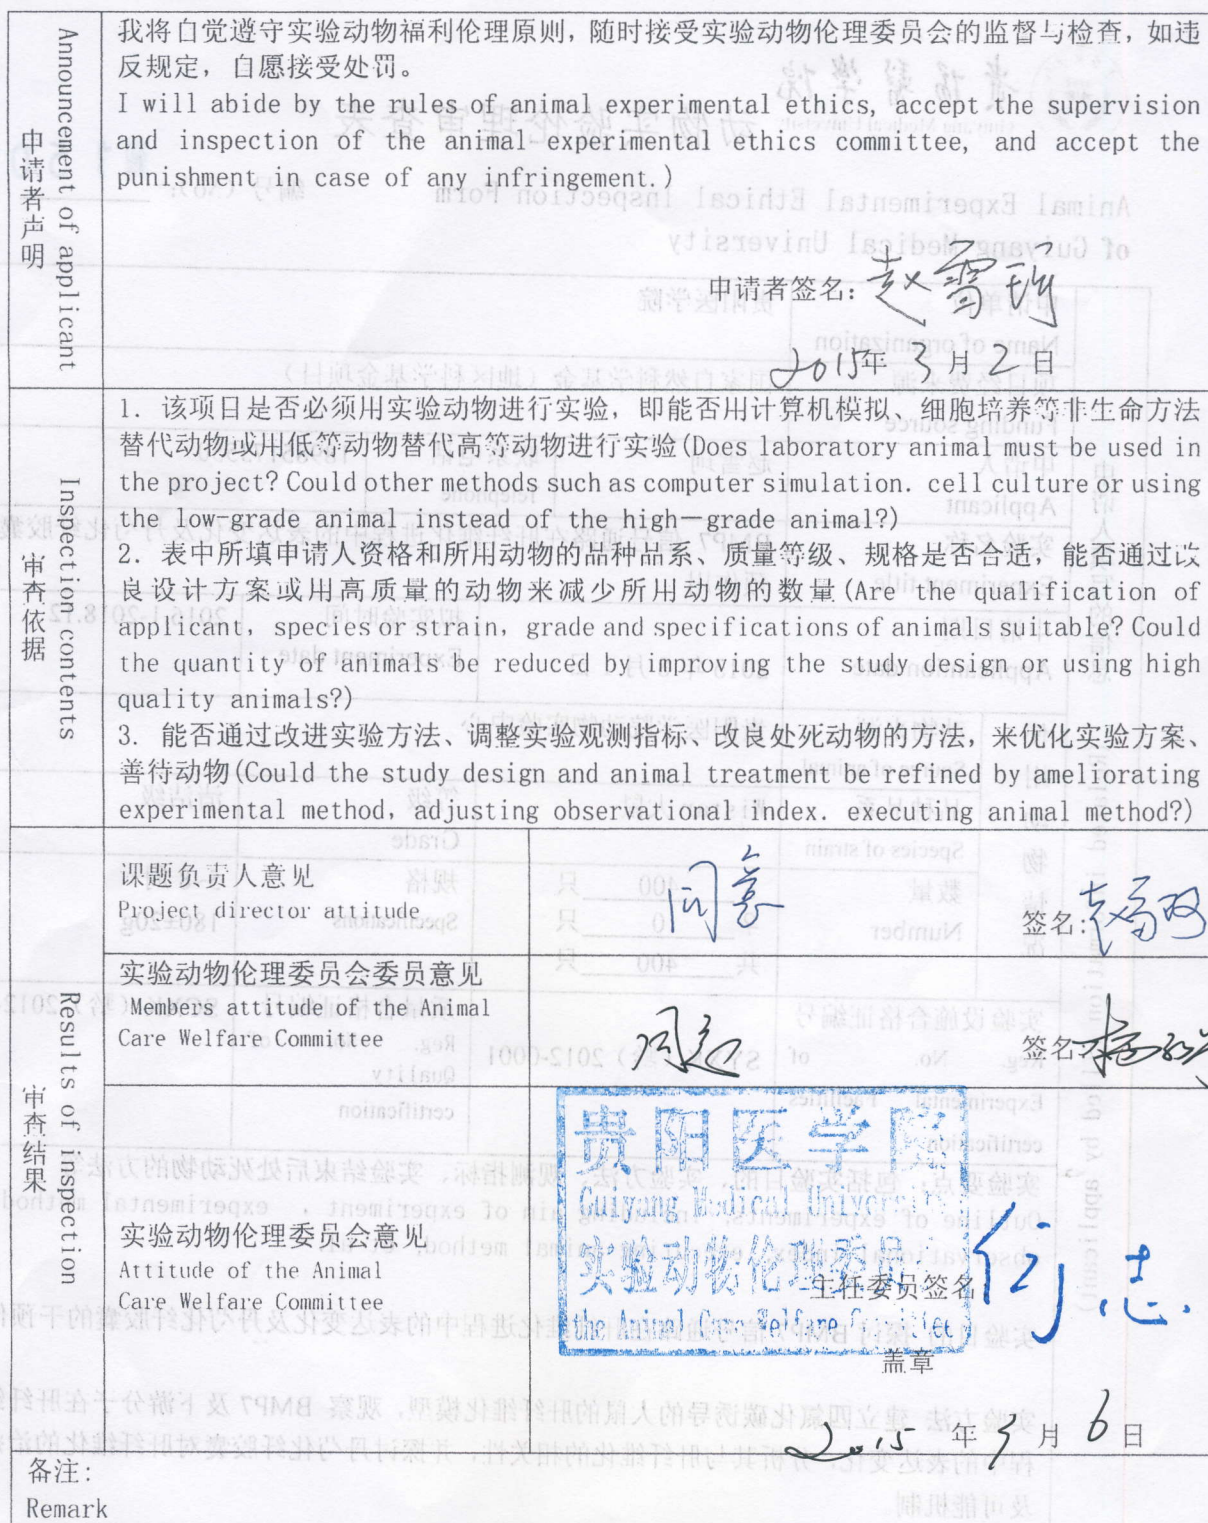 申请者声明
Announcement of applicant
我将自觉遵守实验动物福利伦理原则，随时接受实验动物伦理委员会的监督与检查，如违
反规定，自愿接受处罚。
I will abide by the rules of animal experimental ethics, accept the supervision
and inspection of the animal experimental ethics committee, and accept the
punishment in case of any infringement.)
申请者签名：赵雪珂
2015年 3 月 2 日
审查依据
Inspection contents
1. 该项目是否必须用实验动物进行实验，即能否用计算机模拟、细胞培养等非生命方法
替代动物或用低等动物替代高等动物进行实验(Does laboratory animal must be used in
the project? Could other methods such as computer simulation. cell culture or using
the low-grade animal instead of the high—grade animal?)
2. 表中所填申请人资格和所用动物的品种品系、质量等级、规格是否合适，能否通过改
良设计方案或用高质量的动物来减少所用动物的数量(Are the qualification of
applicant, species or strain, grade and specifications of animal suitable? Could
the quantity of animals be reduced by improving the study design or using high
quality animals?)
3. 能否通过改进实验方法、调整实验观测指标、改良处死动物的方法，来优化实验方案、
善待动物(Could the study design and animal treatment be refined by ameliorating
experimental method, adjusting observational index. executing animal method?)
审查结果
Results of inspection
课题负责人意见
Project director attitude
同意
签名：赵雪珂
实验动物伦理委员会委员意见
Members attitude of the Animal
Care Welfare Committee
同意
签名：
实验动物伦理委员会意见
Attitude of the Animal
Care Welfare Committee
贵阳医学院
Guiyang Medical University
实验动物伦理委员
the Animal Care Welfare Committee
主任委员签名
盖章
2015 年 3 月 6 日
备注：
Remark